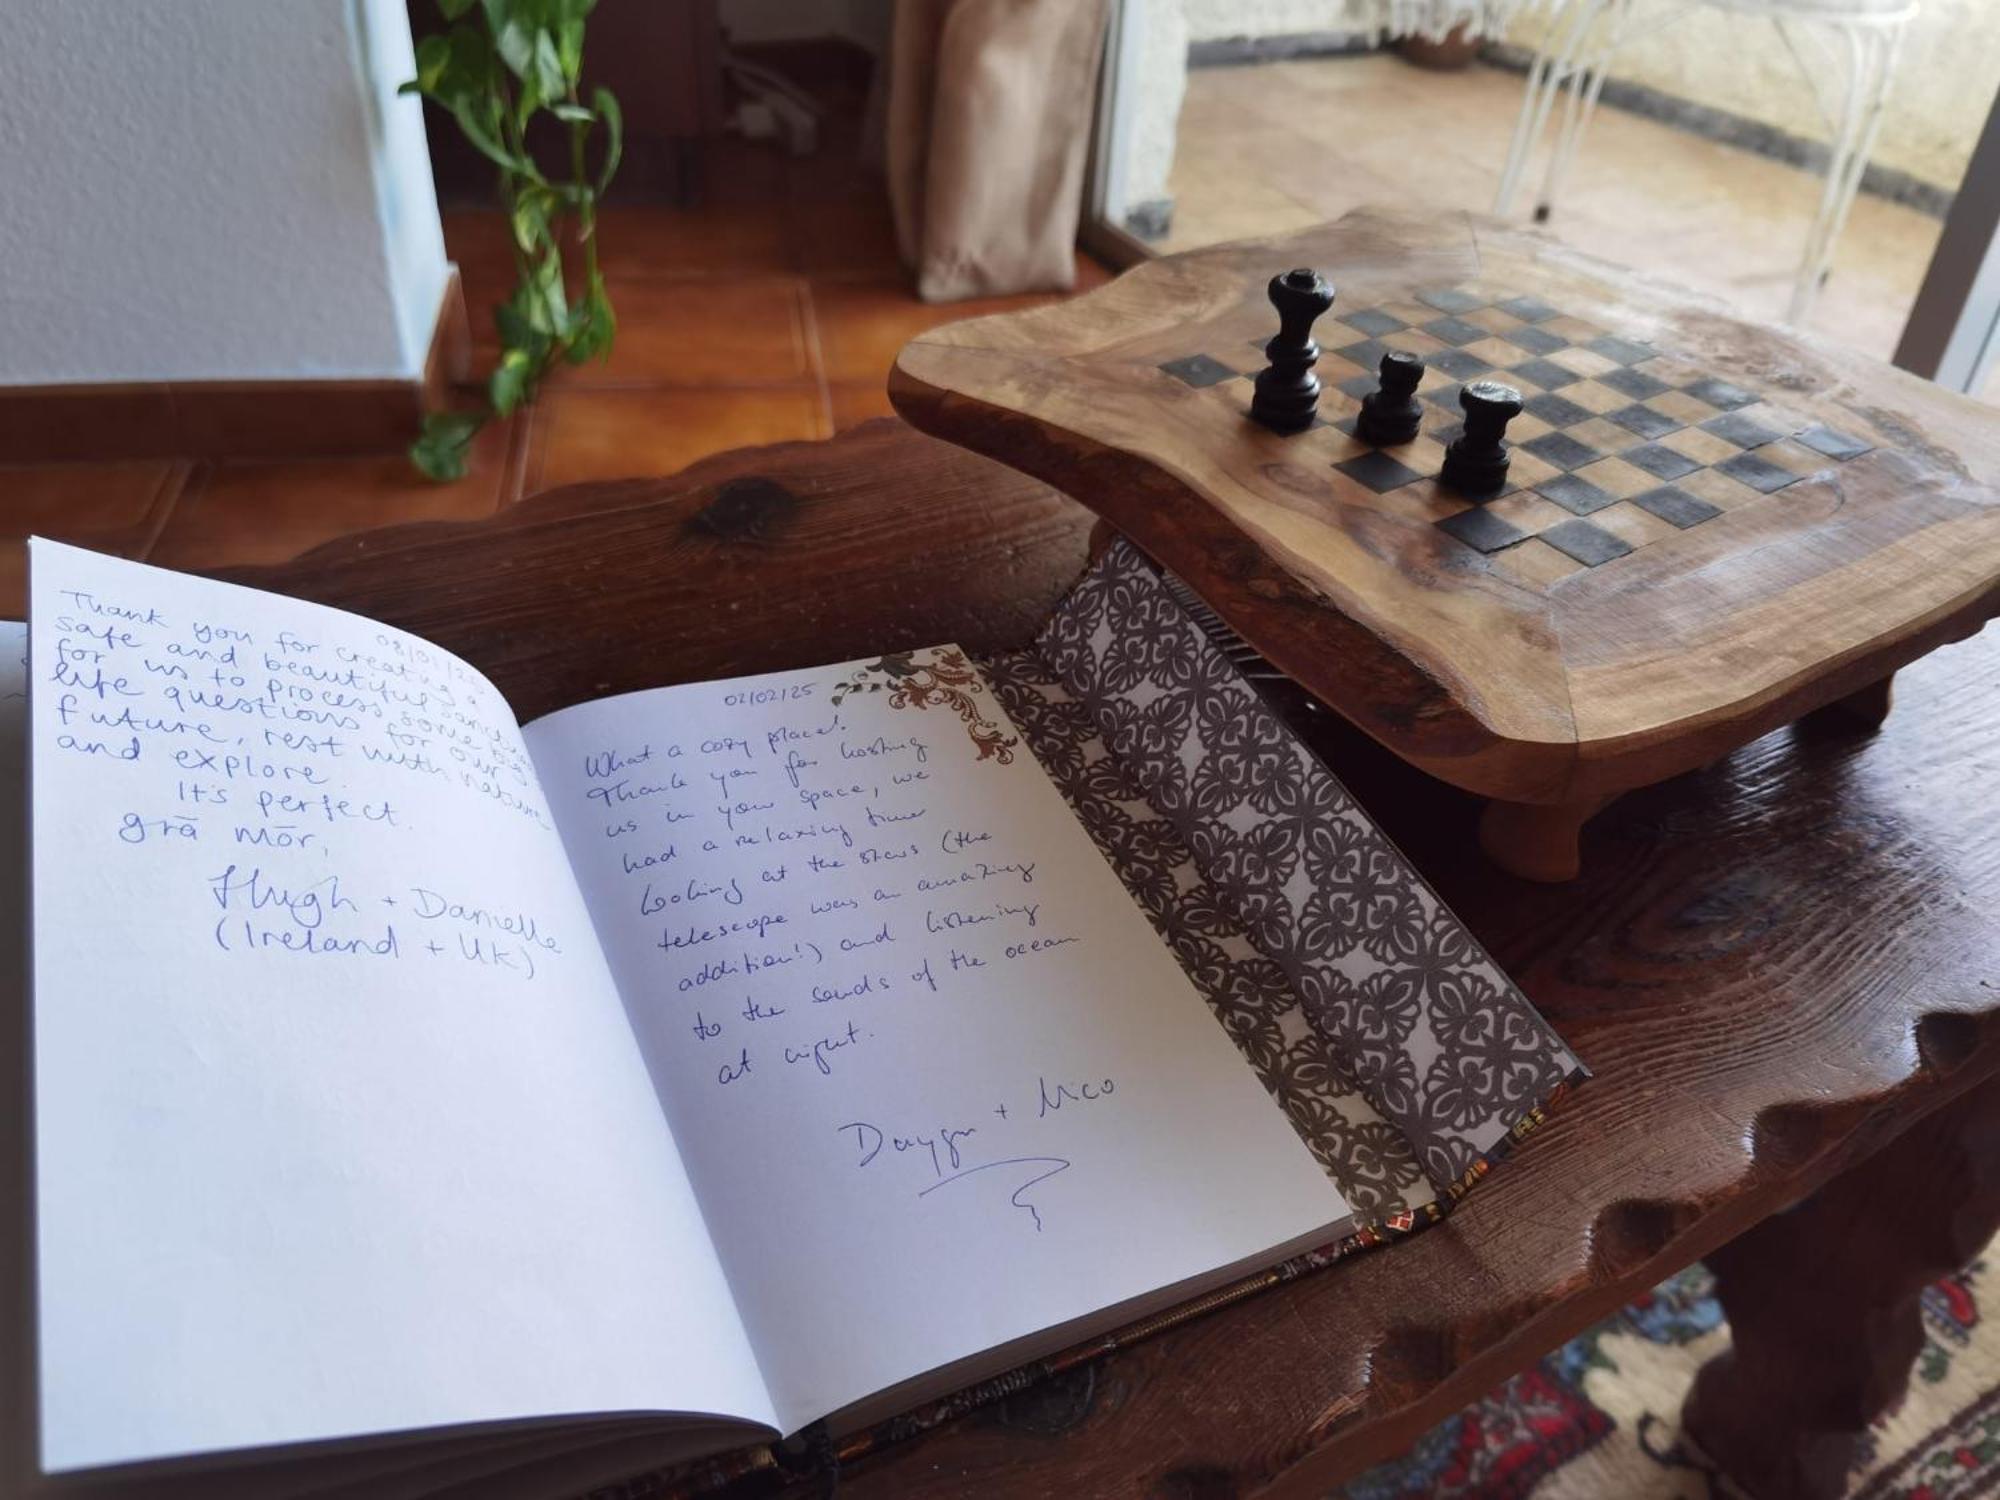 08/01/25
Thank you for creating a
safe and beautiful
for us to process some big
life questions for our
future, rest with nature
and explore.
It's perfect.
grā mōr,
Hugh + Danielle
(Ireland + UK)
02/02/25
What a cozy place!
Thank you for hosting
us in your space, we
had a relaxing time
looking at the stars (the
telescope was an amazing
addition!) and listening
to the sounds of the ocean
at night.
+ Nico